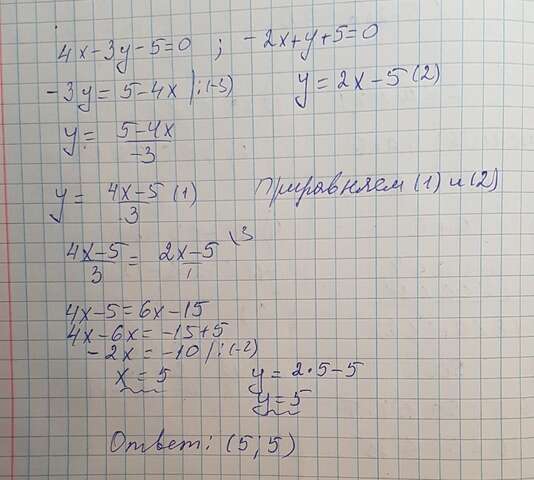 4x-3y-5=0 ; -2x+y+5=0
-3y = 5-4x |:(-3)
y = 2x-5 (2)
y = 5-4x / -3
y = 4x-5 / 3 (1)
Приравняем (1) и (2)
4x-5 / 3 = 2x-5 / 1 \3
4x-5=6x-15
4x-6x=-15+5
-2x = -10 |:(-2)
x = 5
y = 2·5-5
y=5
Ответ: (5; 5)